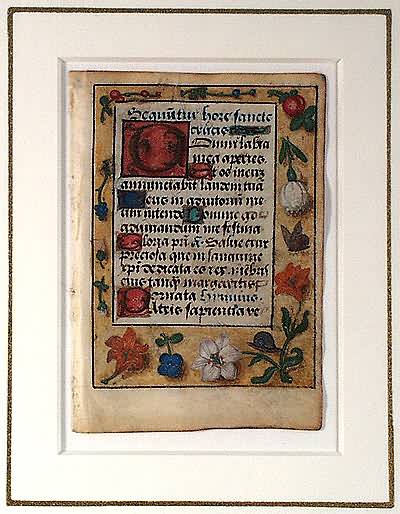 Sequūtur hore sancte
crucis
Domi labia
mea aperies.
Et os meuz
annunciabit laudem tuā
Deus in adiutoriū me
um intende Domine ad
iuuandum me festina
Gloria pri. A. Salue crux
preciosa que in sanguine
xpi dedicata es et ex mēbris
eius tanqz margaritis
ornata hymnus.
Patris sapientia ve